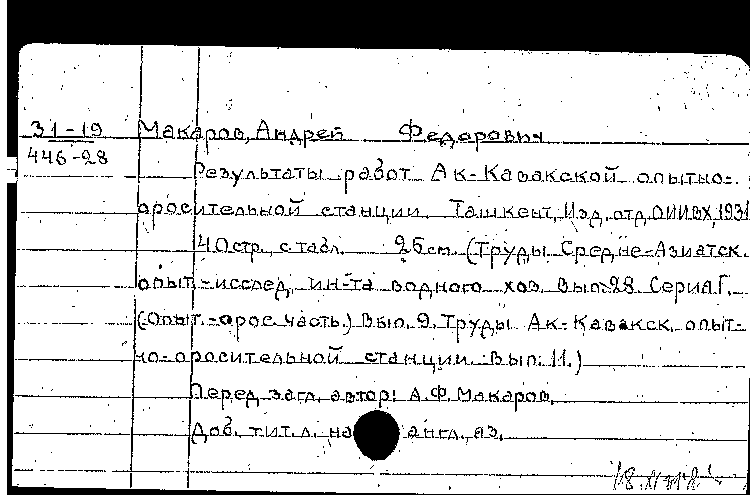 31-19 Макаров, Андрей Федорович
446-28
Результаты работ Ак-Кавакской опытно-
оросительной станции. Ташкент, Изд. отд. ОИИВХ, 1931
40 стр. с табл. 26 см. (Труды Средне-Азиатск.
опыт.-исслед. ин-та водного хоз. Вып. 28. Серия Г.
(Опыт.-орос. часть.) Вып. 9. Труды Ак-Кавакск. опыт-
но-оросительной станции. Вып. 11.)
Перед загл. автор: А.Ф. Макаров.
Доб. тит. л. на англ. яз.